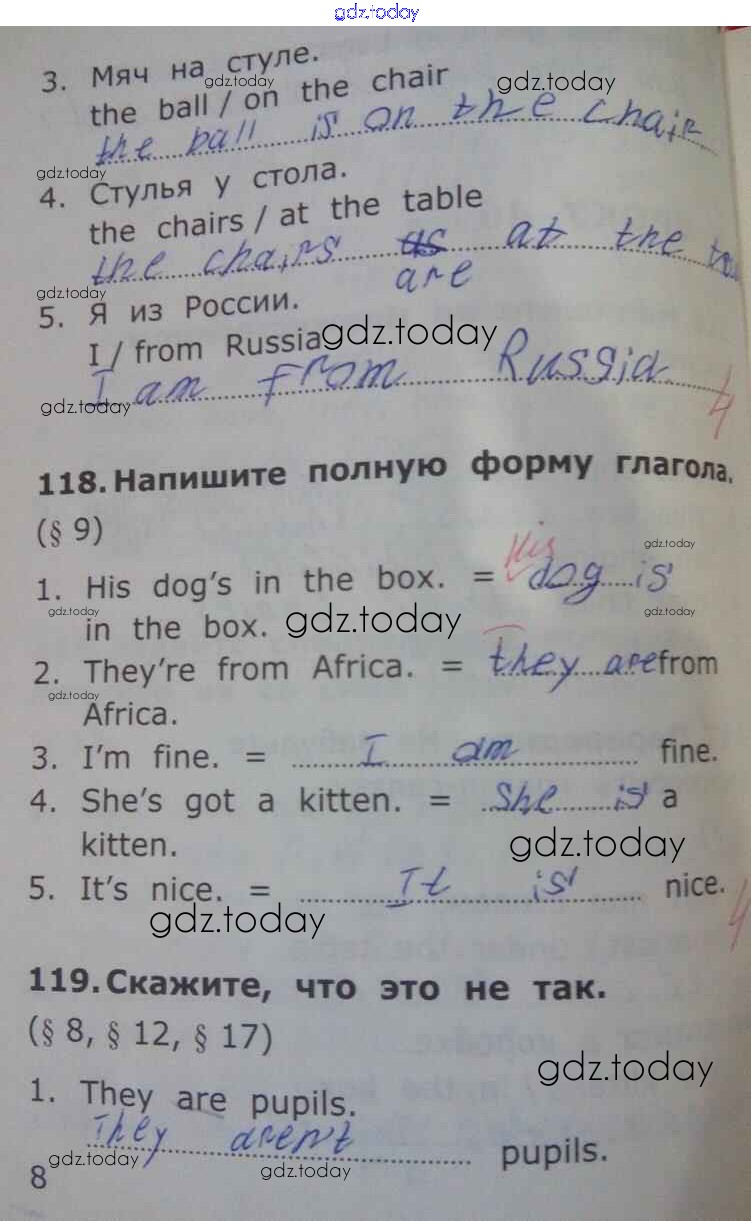 gdz.today
3. Мяч на стуле.
gdz.today
the ball / on the chair
gdz.today
the ball is on the chair
gdz.today
4. Стулья у стола.
the chairs / at the table
the chairs is at the
are
gdz.today
5. Я из России.
I / from Russia
gdz.today
I am from Russia
gdz.today
4
118. Напишите полную форму глагола.
(§ 9)
His
gdz.today
1. His dog's in the box. = dog is
gdz.today
in the box.
gdz.today
2. They're from Africa. = they are from
gdz.today
Africa.
3. I'm fine. = I am fine.
4. She's got a kitten. = she is a
kitten.
gdz.today
5. It's nice. = It is nice.
gdz.today
4
119. Скажите, что это не так.
(§ 8, § 12, § 17)
gdz.today
1. They are pupils.
They aren't pupils.
gdz.today
gdz.today
8